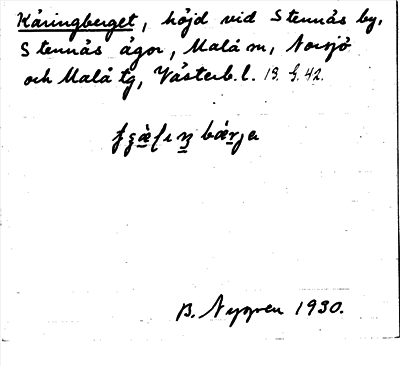 Käringberget, höjd vid Stennäs by,
Stennäs ägor, Malå sn, Norsjö
och Malå tg, Västerb. l. 19. G. 42.
B. Nygren 1930.